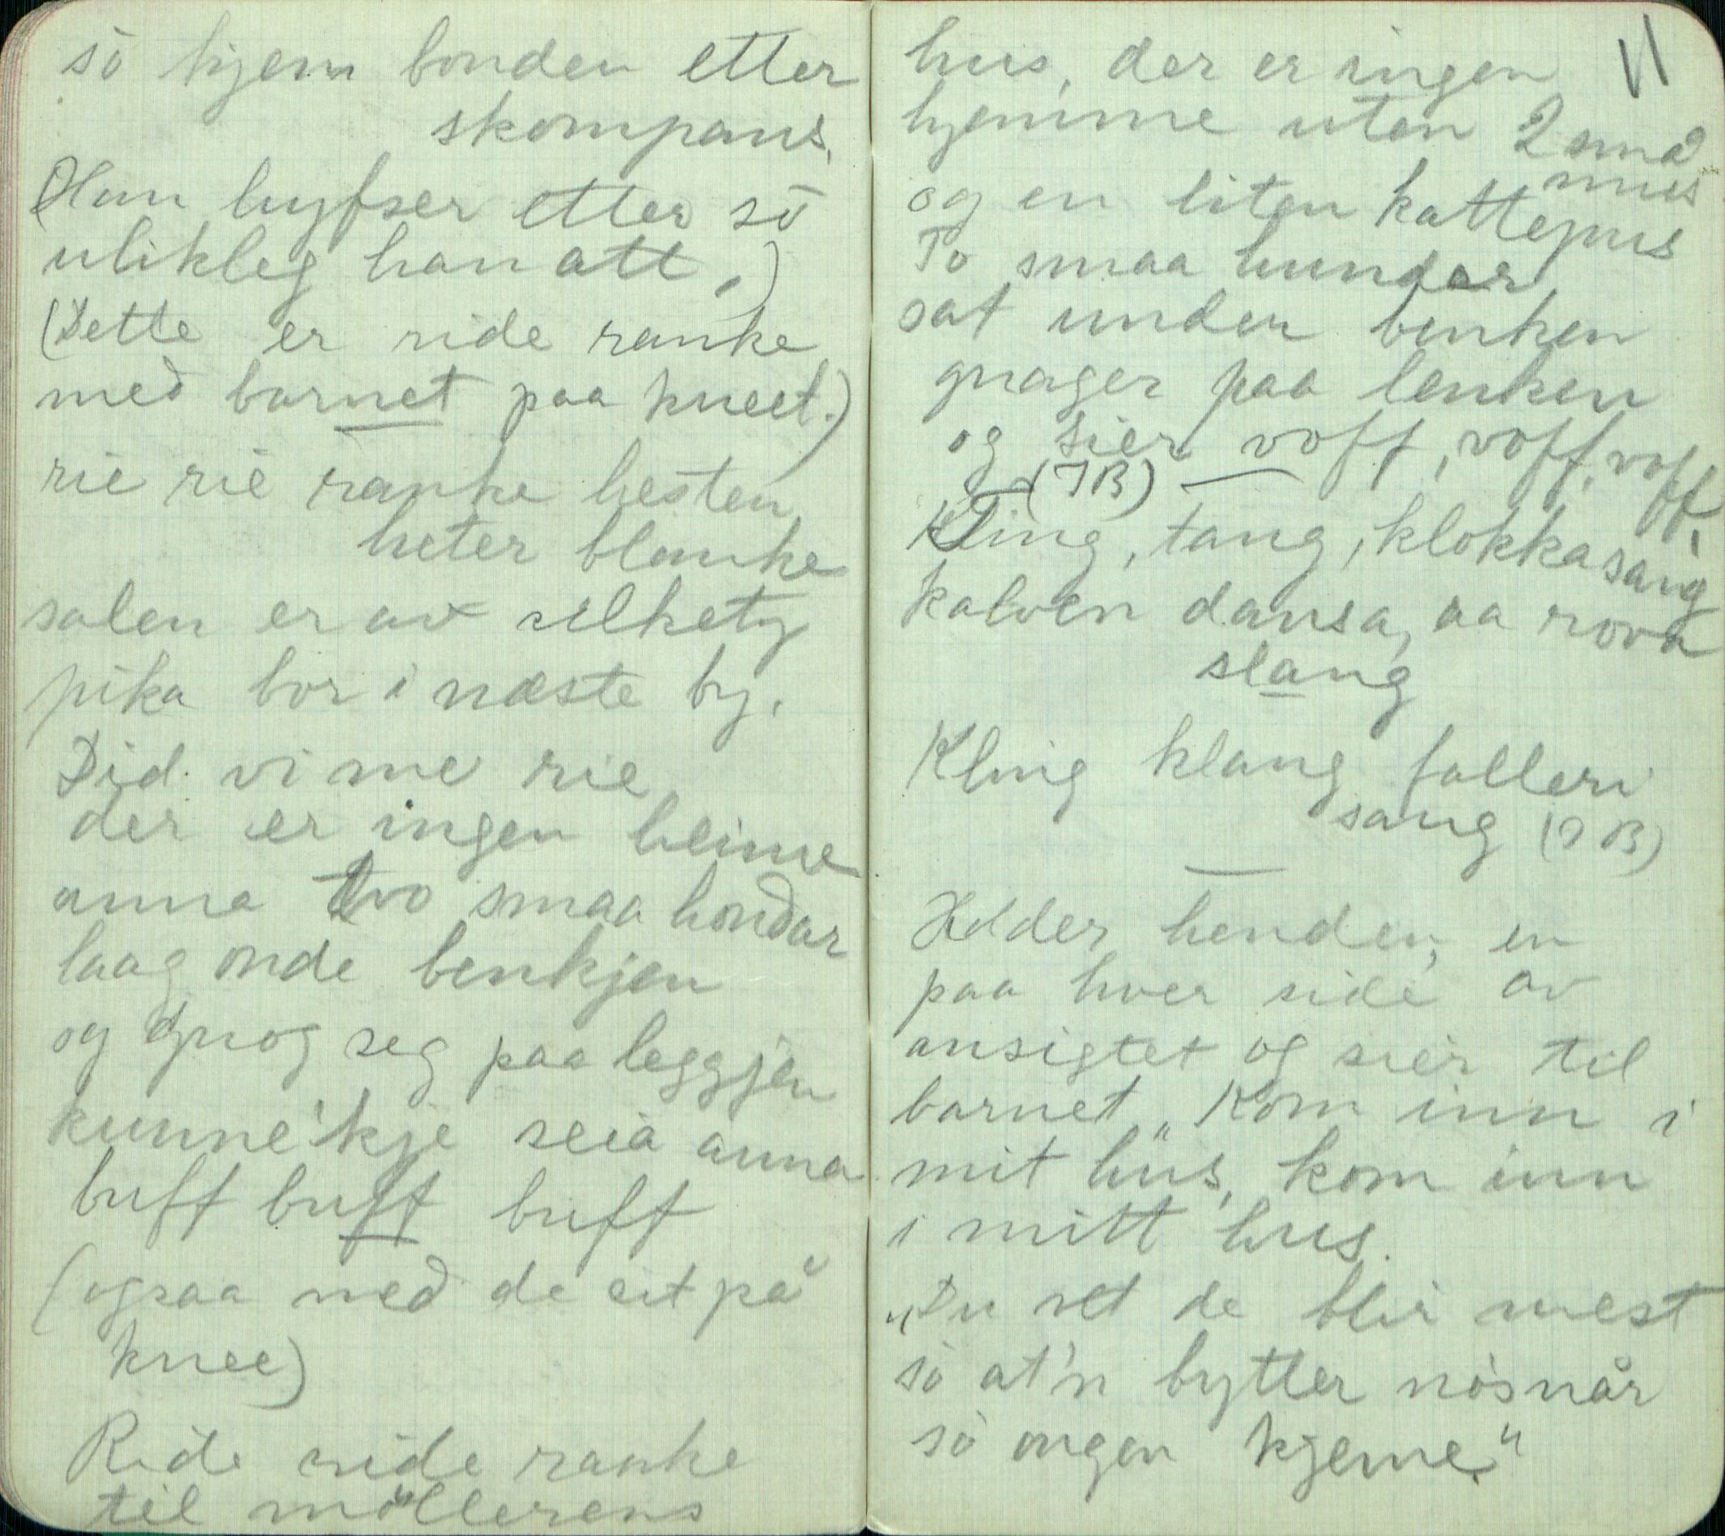 så kjem bonden etter
skompans.
(Han hyfser etter så
ulikleg han att.)
(Dette er ride ranke
med barnet paa kneet.)
rie rie ranke hesten
heter blanke
salen er av silkety
pika bor i næste by.
Did vi me rie
der er ingen heime
anna tvo smaa hondar
laag onde benkjen
og gnog seg paa leggjen
kunne'kje seia anna
buff buff buff
(ogsaa med de eit på
knee)
Ride ride ranke
til møllerens
11
hus, der er ingen
hjemme uten 2 små
mus
og en liten kattepus
To smaa hunder
sat under benken
gnager paa lenken
og sier voff, voff, voff,
(IB)
Kling, tang, klokka sang
kalven dansa, aa rova
slang
Kling klang falleri
sang (IB)
Holder henden, en
paa hver side av
ansigtet og sier til
barnet "Kom inn i
mit hus, kom inn
i mitt hus.
"Du vet de blir mest
så at'n bytter nøsnår
så ongen kjeme"